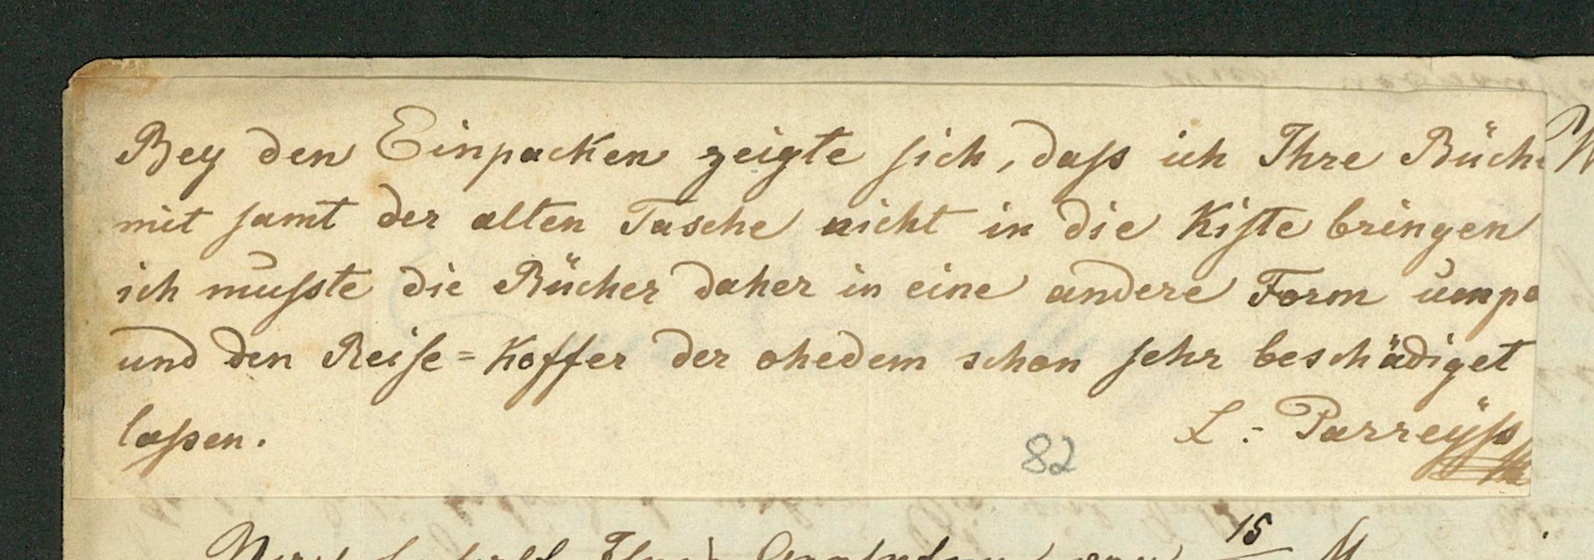 Bey den Einpacken zeigte sich, daſs ich Ihre Büch
mit samt der alten Tasche nicht in die Kiste bringen
ich muſste die Bücher daher in eine andere Form umpa
und den Reise=Koffer der ohedem schon sehr beschädiget
laſsen.
L:= Parreyſs
82
15